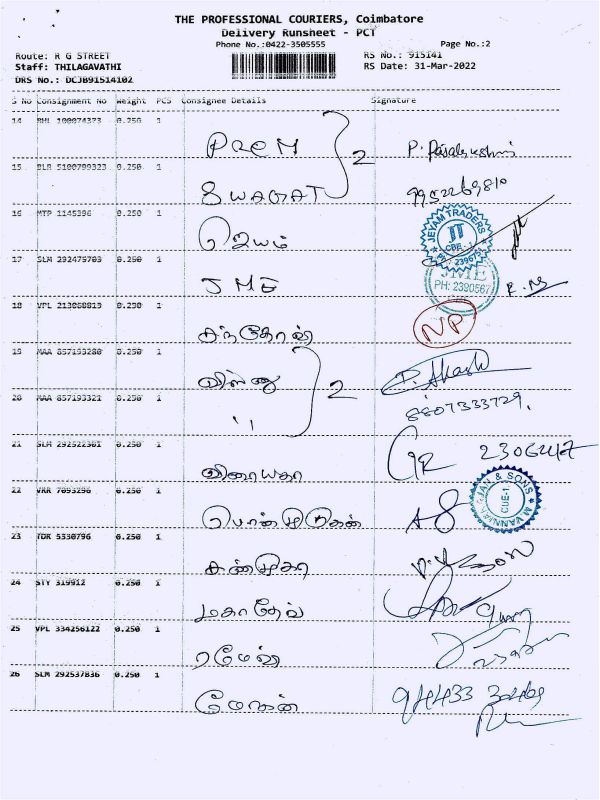 THE PROFESSIONAL COURIERS, Coimbatore
Delivery Runsheet - PCT
Phone No.:0422-3505555
Page No.:2
Route: R G STREET
RS No.: 915141
Staff: THILAGAVATHI
RS Date: 31-Mar-2022
DRS No.: DCJB91514102
S No Consignment No Weight PCS Consignee Details Signature
14 100074373 0.250 1
PREM
15 BLR 5100799323 0.250 1
2
SWAGAT
16 MTP 1145396 0.250 1
ஜெயம்
JEYAM TRADERS
JT
CBE-1
17 SLM 292479703 0.250 1
JME
JME
PH: 2390567
18 VPL 213068819 0.250 1
சந்தோஷ்
NP
19 MAA 857193280 0.250 1
விஷ்ணு
2
P. Akash
20 MAA 857193321 0.250 1
''
8807333729.
21 SLM 292522301 0.250 1
22 VKR 7093296 0.250 1
பொன்முருகன்
& SONS
23 TDR 5330796 0.250 1
சண்முகா
24 STY 319912 0.250 1
மகாதேவ்
25 VPL 334256122 0.250 1
ரமேஷ்
26 SLM 292537836 0.250 1
மோகன்